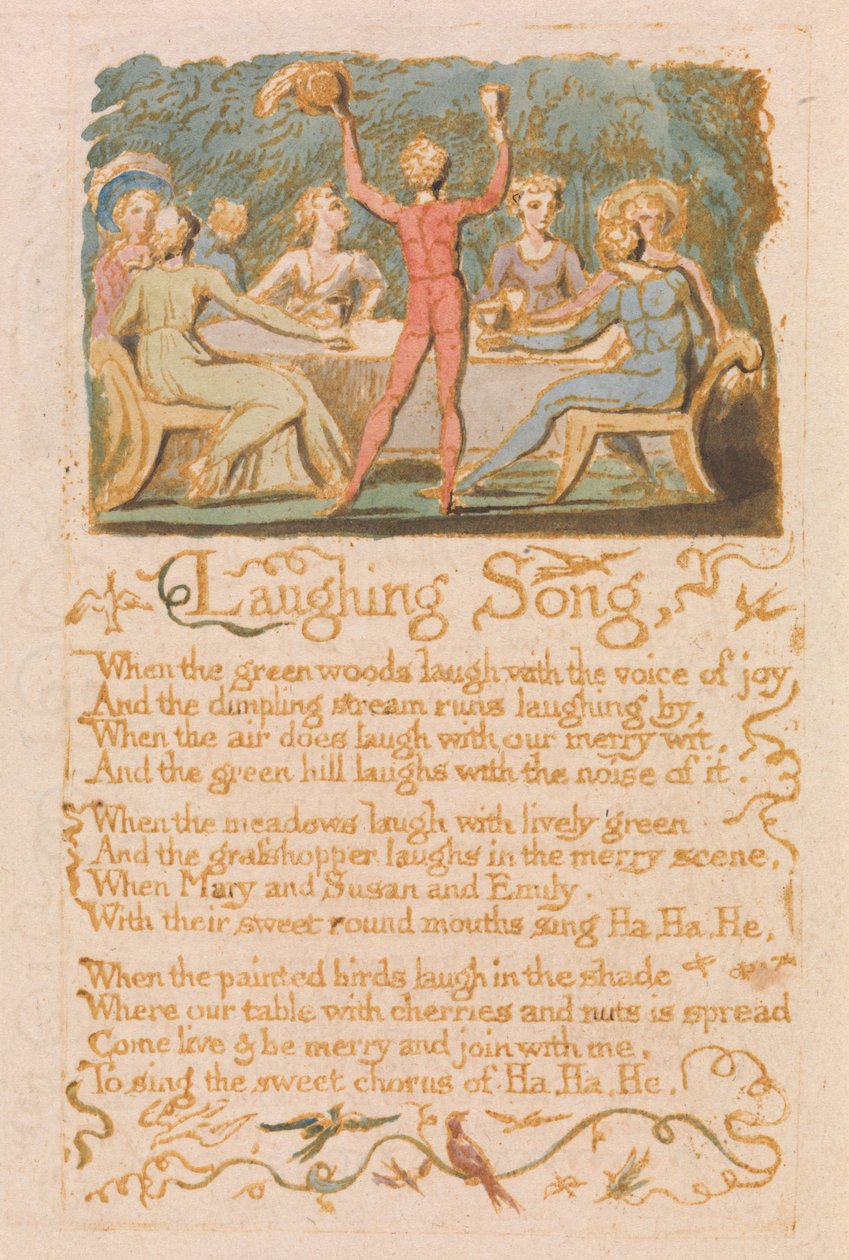 Laughing Song,
When the green woods laugh with the voice of joy
And the dimpling stream runs laughing by,
When the air does laugh with our merry wit,
And the green hill laughs with the noise of it.
When the meadows laugh with lively green
And the graſshopper laughs in the merry scene,
When Mary and Susan and Emily,
With their sweet round mouths sing Ha, Ha, He,
When the painted birds laugh in the shade
Where our table with cherries and nuts is spread
Come live & be merry and join with me,
To sing the sweet chorus of Ha, Ha, He.